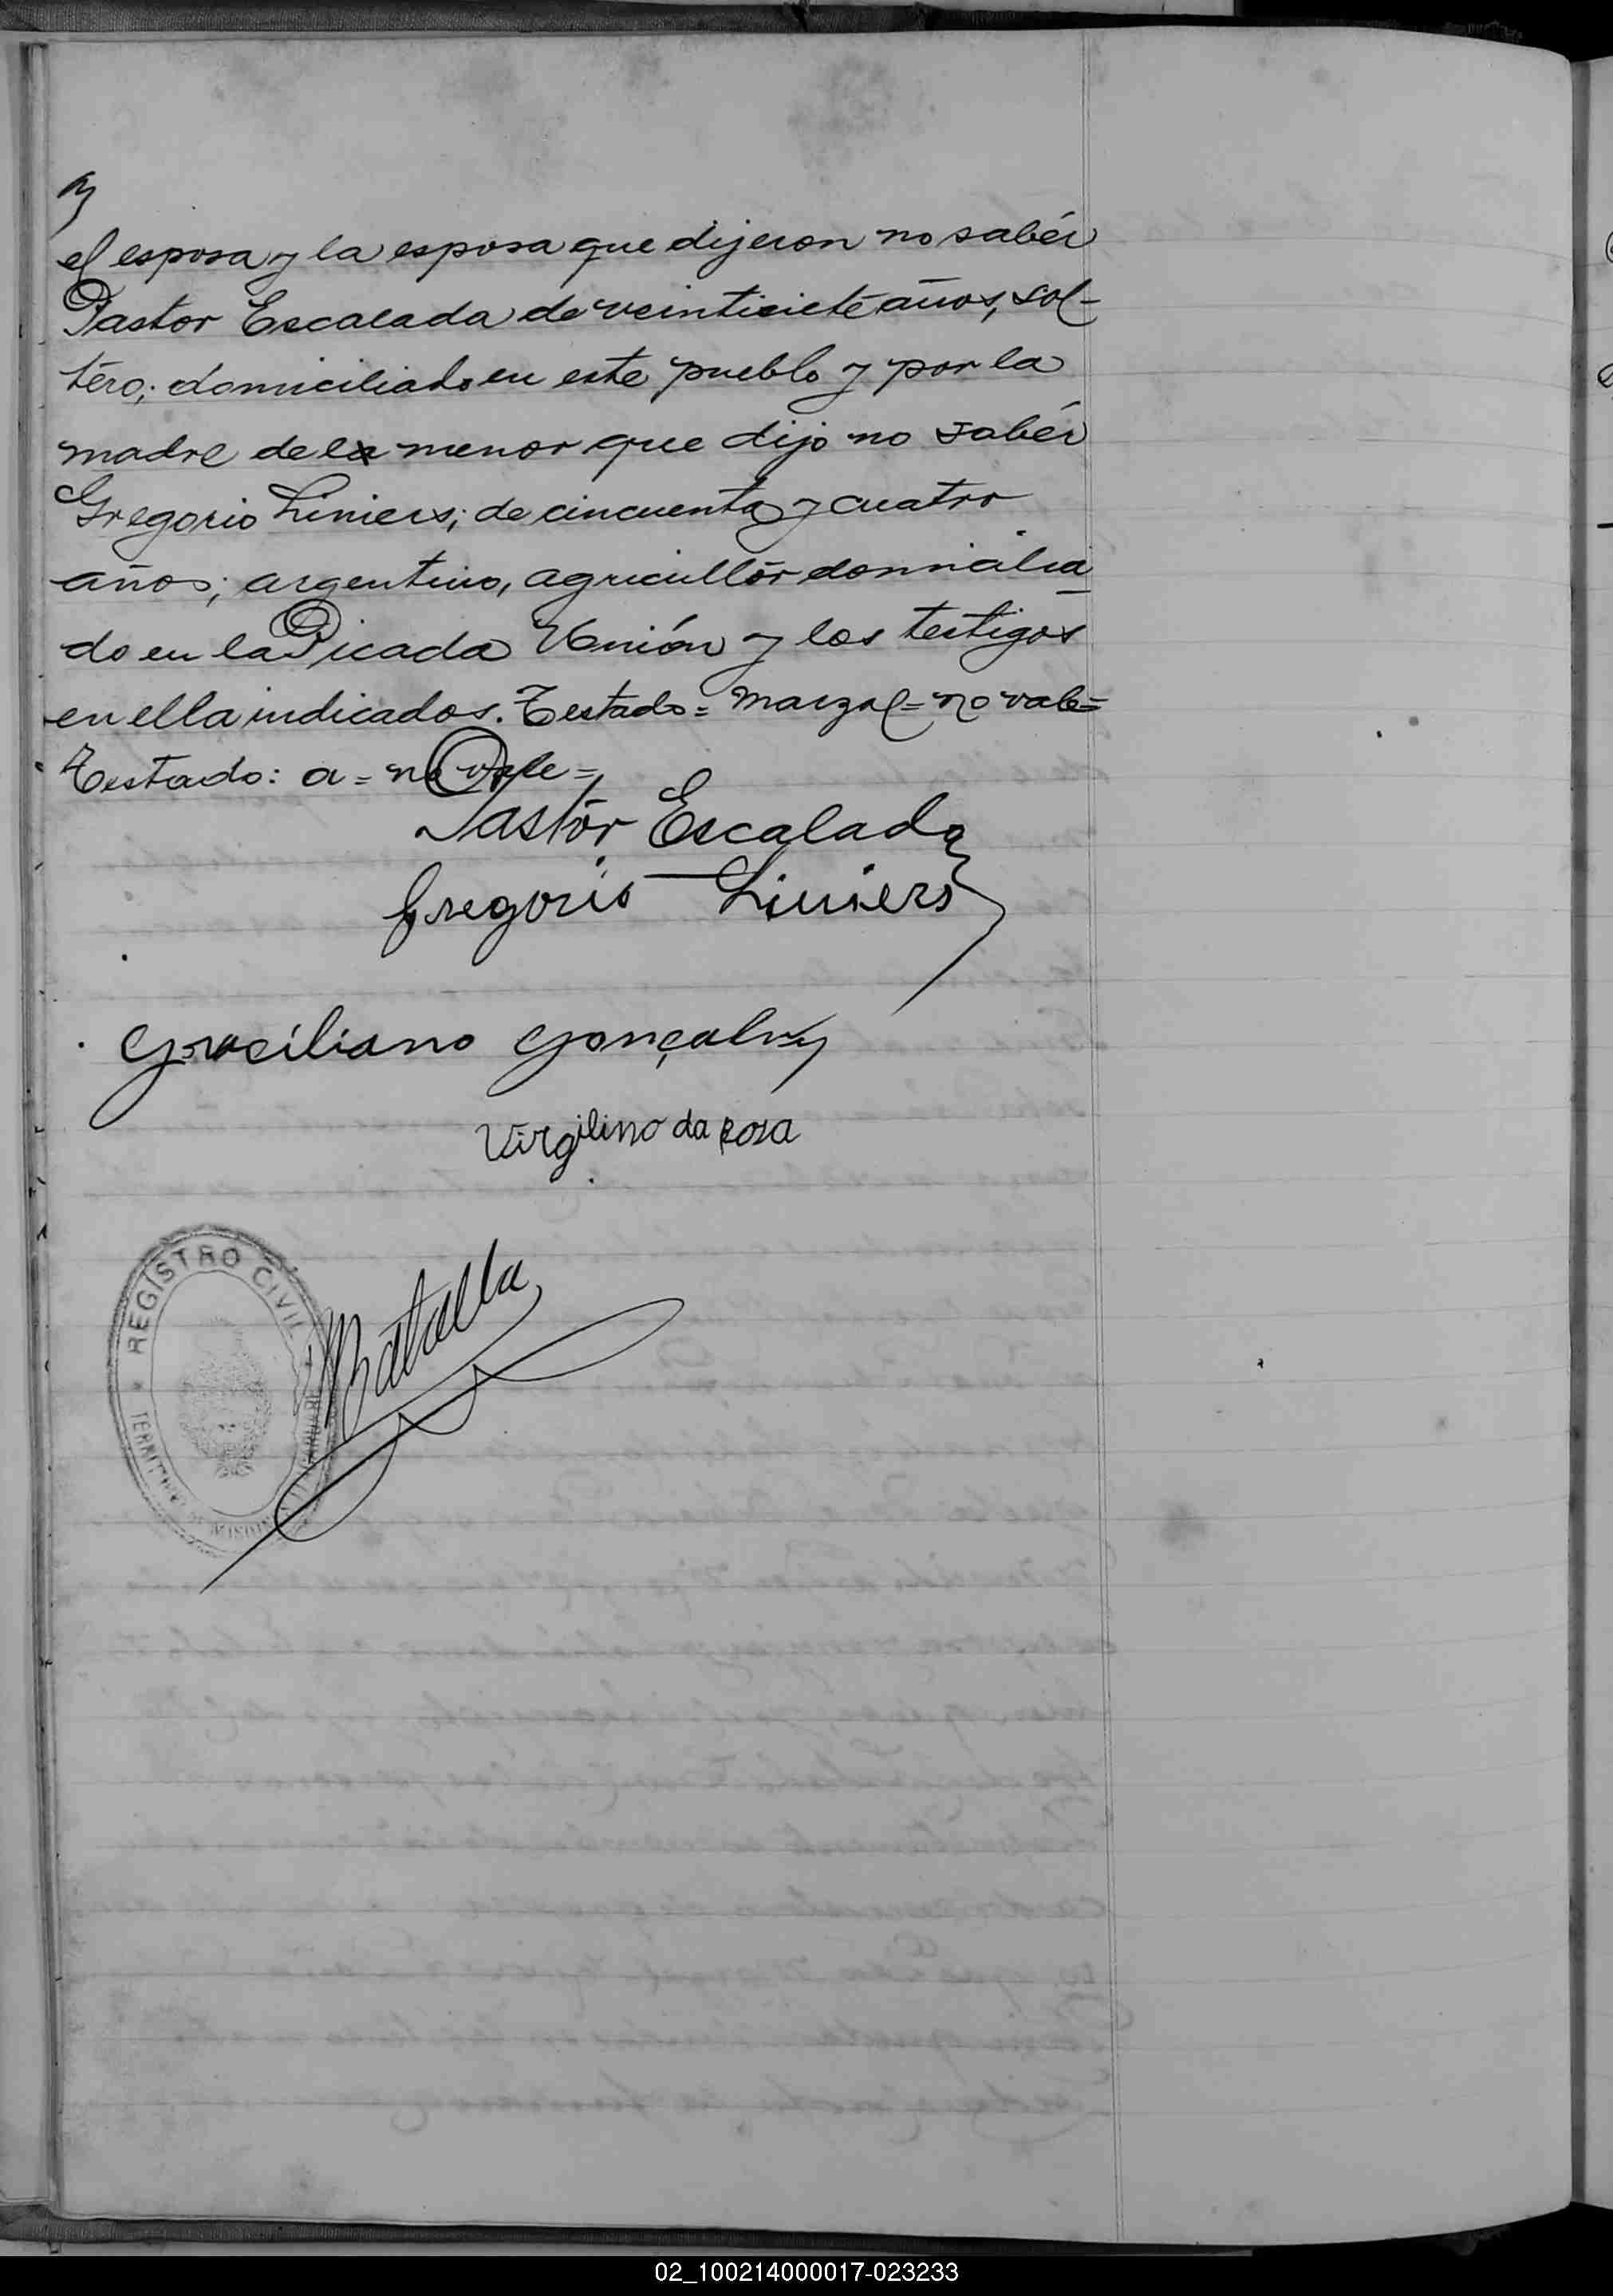 el esposo y la esposa que dijeron no saber
Pastor Escalada de veintisiete años, sol-
tero; domiciliado en este pueblo y por la
madre de la menor que dijo no saber
Gregorio Liniers; de cincuenta y cuatro
años; argentino, agricultor domicilia
do en la Picada Unión y los testigos
en ella indicados. Testado= marzal= no vale=
Testado: a= no vale=
Pastor Escalada
Gregorio Liniers
Graciliano Gonçalvez
Virgilino da Rosa
REGISTRO CIVIL
TERRITORIO DE MISIONES
Batalla
02_100214000017-023233